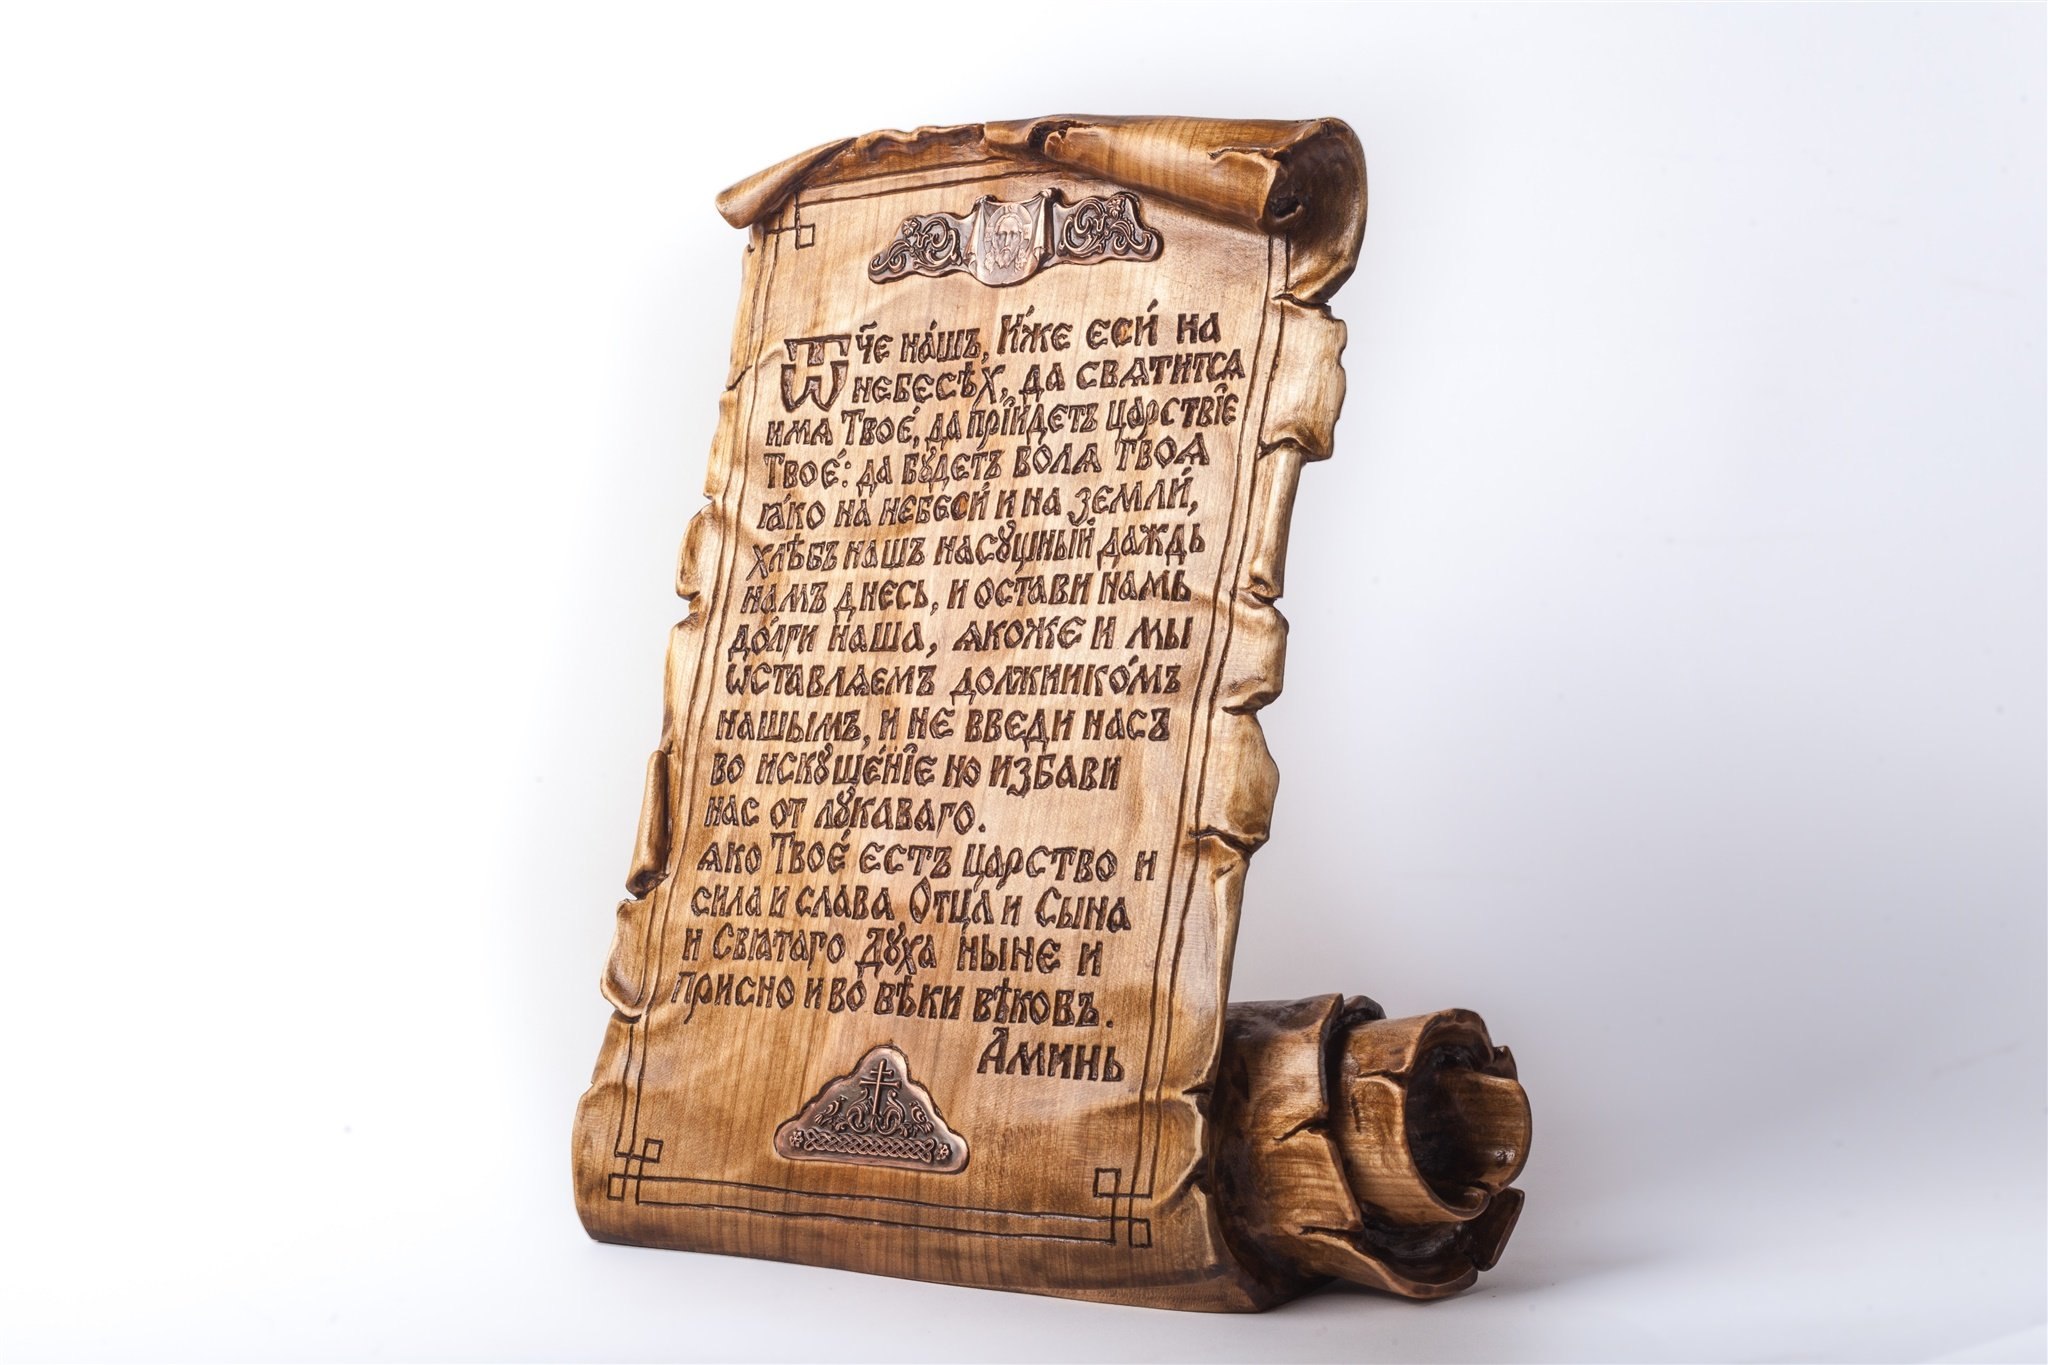 Ѿч҃е на́шъ, И́же єсѝ на
небесѣ́х, да свѧтитсѧ
имѧ Твоє́, да прїи́детъ царствїе
Твоє́: да бꙋ́детъ волѧ твоѧ
ꙗ́ко на небєсѝ и на земли́,
хлѣ́бъ нашъ насꙋщный даждь
намъ днєсь, и остави намь
до́лги наша, ѧкоже и мы
ѡставлѧємъ должнико́мъ
нашымъ, и не введи насъ
во искꙋше́нїе но избави
нас от лꙋ́каваго.
ѧко Твоє́ єстъ царство и
сила и слава Отца́ и Сына
и Свꙗтаго Дꙋха ныне и
присно и во вѣки вѣковъ.
Аминь